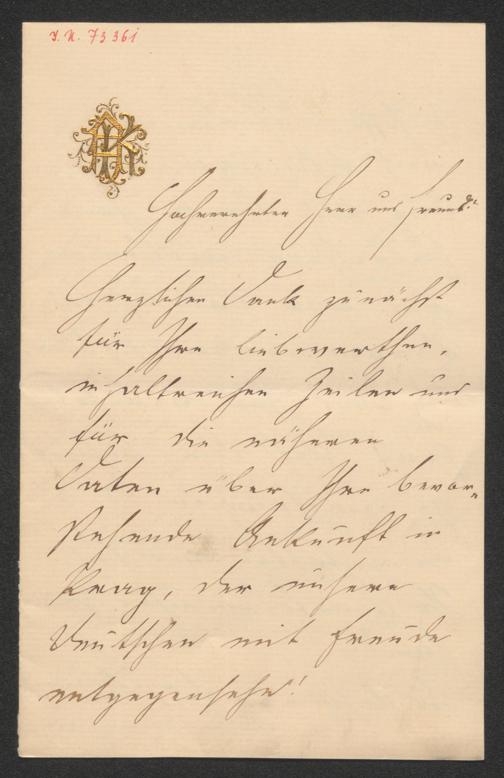 I. N. 73361
AK
Hochverehrter Herr und Freund!
Herzlichen Dank zunächst
für Ihre liebwerthen,
inhaltreichen Zeilen und
für die näheren
Daten über Ihre bevor-
stehende Ankunft in
Prag, der unsere
Deutschen mit Freude
entgegensehn!